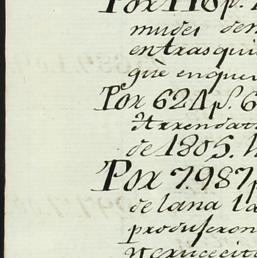 Por 110 p.
mudes den
entrasqui
què enquer
Por 624 p. 6
Arrendat
de 1805.
Por 7987 p
de lana la
produseron